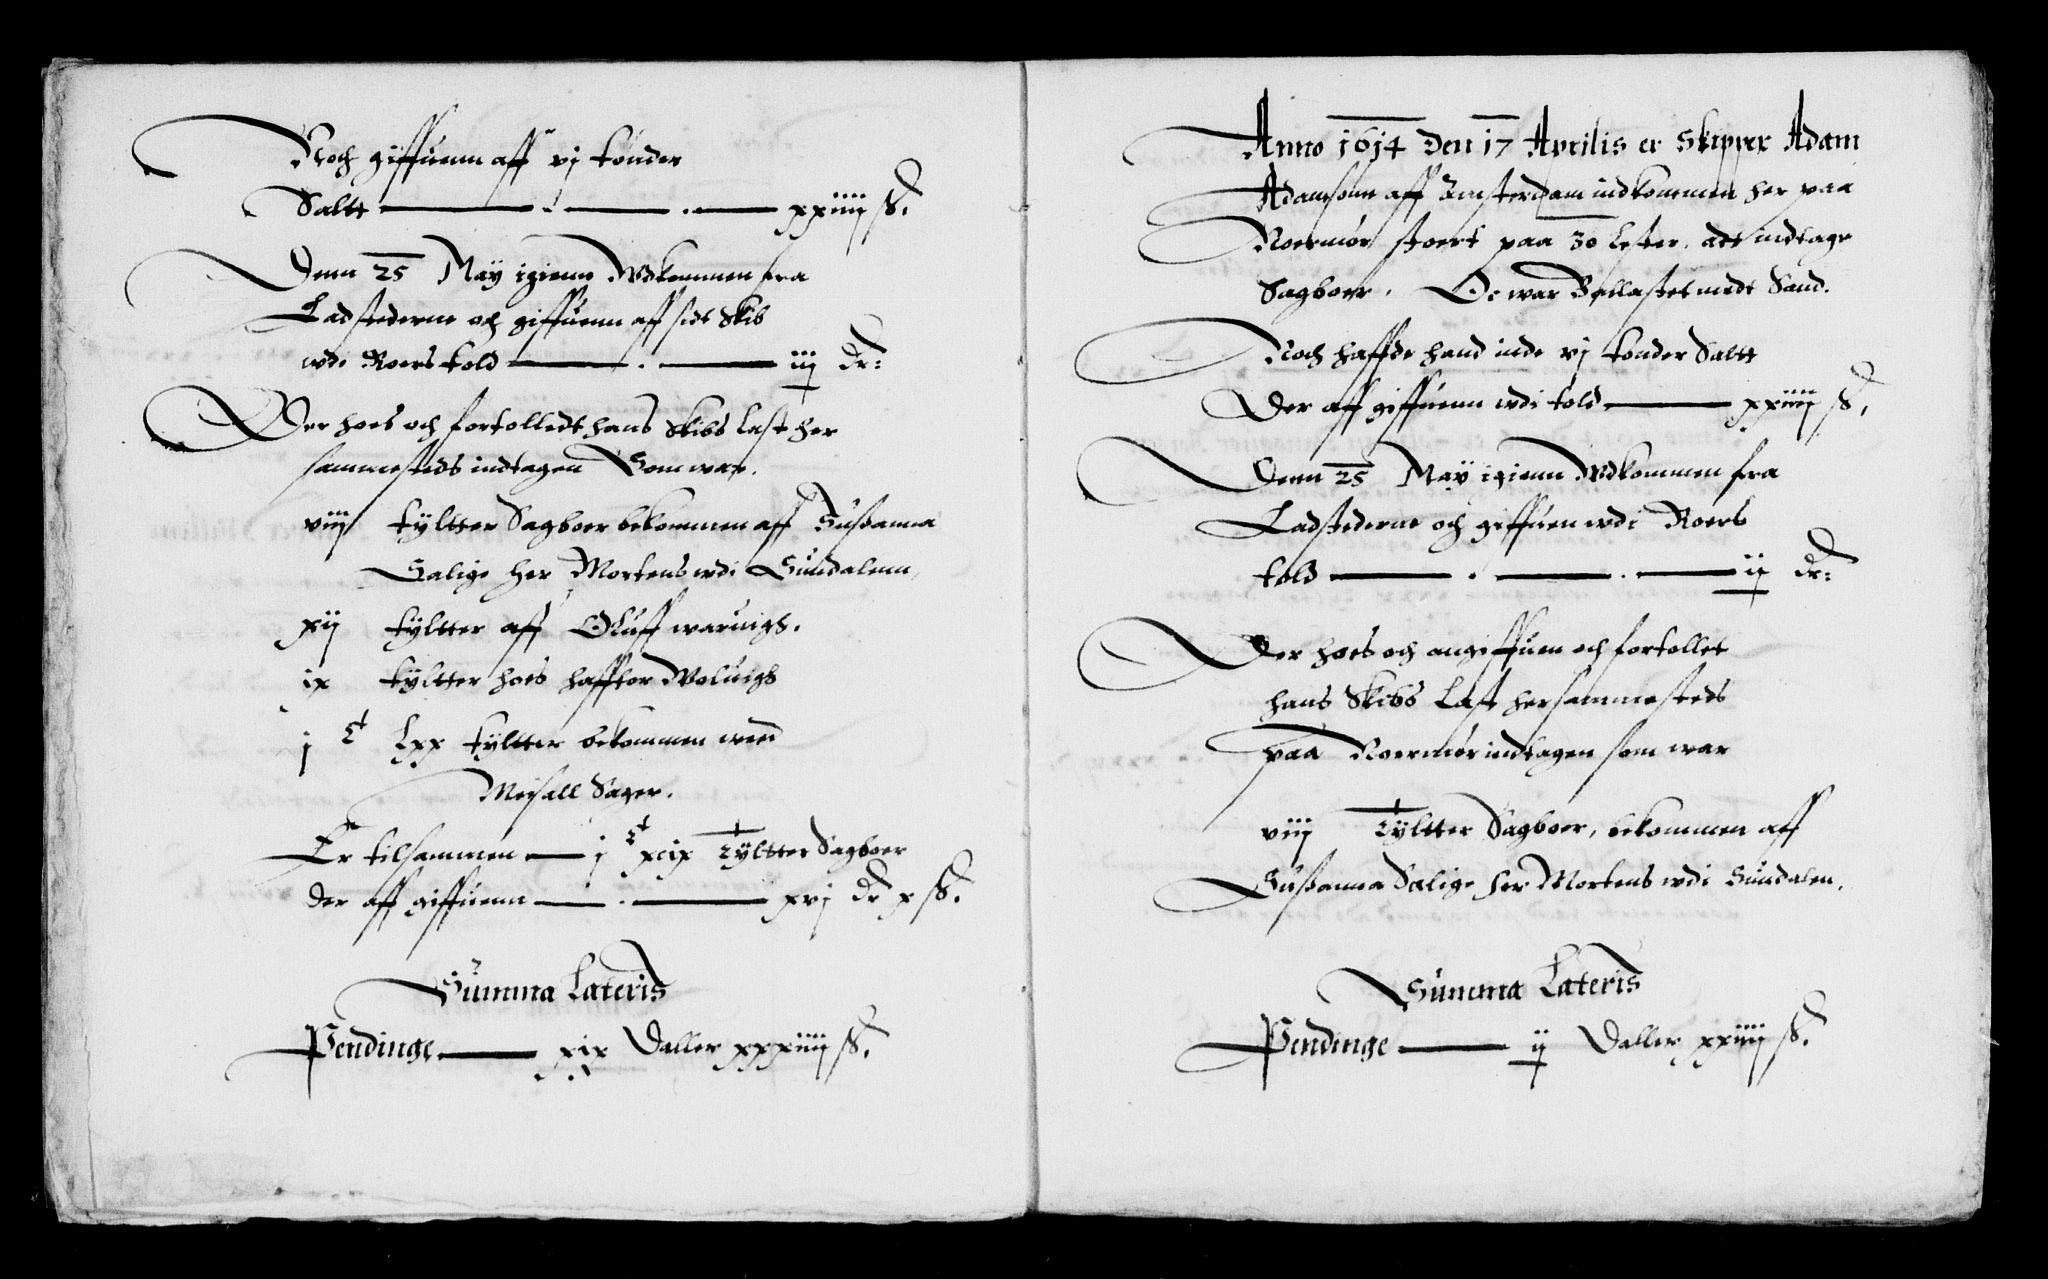 Noch giffuenn aff vj tonder
Saltt xxiiij ß.
Denn 25 Maÿ igienn Wdkommen fra
Ladstederne och giffuenn aff sidt Skib
wdi Roers told iij dr:
Der hoes och fortolledt hans Skibs last her
sammesteds indtagen Som war.
viij tÿltter Sagboer bekommen aff Sußanna
Salige Her Mortens wdi Sundalenn.
xij tÿltter aff Oluff
ix tÿltter hoes haffior
j Ct Lxx tÿltter bekommen wed
Meisall Sager.
Er tilsammen j Ct xcix Tÿltter Sagboer
der aff giffuenn xvj dr x ß.
Summa Lateris
Pendinge xix Daller xxxiiij ß.
Anno 1614 Den 17 Aprilis er Skipper Adam
Adamsonn aff Amsterdam indkommen her paa
Noermør stoert paa 30 Lester, att indtage
Sagboer. Oc war Ballastet medt Sand.
Noch haffde hand inde vj tonder Saltt
Der aff giffuenn wdi told xxiiij ß.
Denn 25 Maÿ igienn Wdkommen fra
Ladstederne och giffuen wdi Roers
told ij dr:
Der hoes och angiffuen och fortollet
hans Skibs Last hersammesteds
paa Noermør indtagen som war
viij Tÿltter Sagboer, bekommen aff
Sußanna Salige Her Mortens wdi Sundalen.
Summa Lateris
Pendinge ij Daller xxiiij ß.